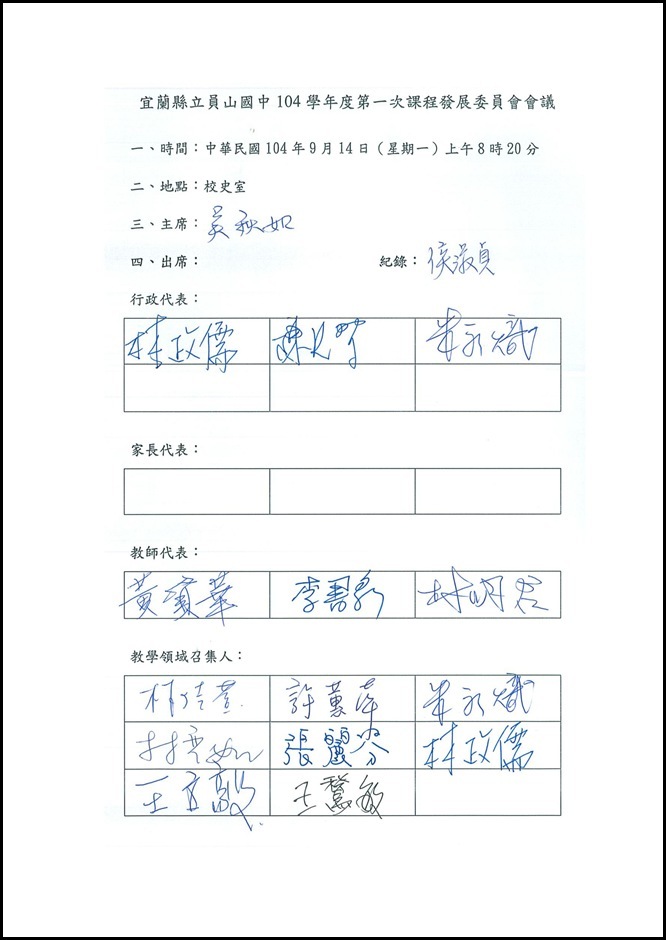 宜蘭縣立員山國中104學年度第一次課程發展委員會會議
一、時間：中華民國104年9月14日（星期一）上午8時20分
二、地點：校史室
三、主席：吳秋如
四、出席： 紀錄：侯淑貞
行政代表：
林政儒
家長代表：
教師代表：
黃賓華 李書豪
教學領域召集人：
許蕙萍
張麗芬 林政儒
王慧敏